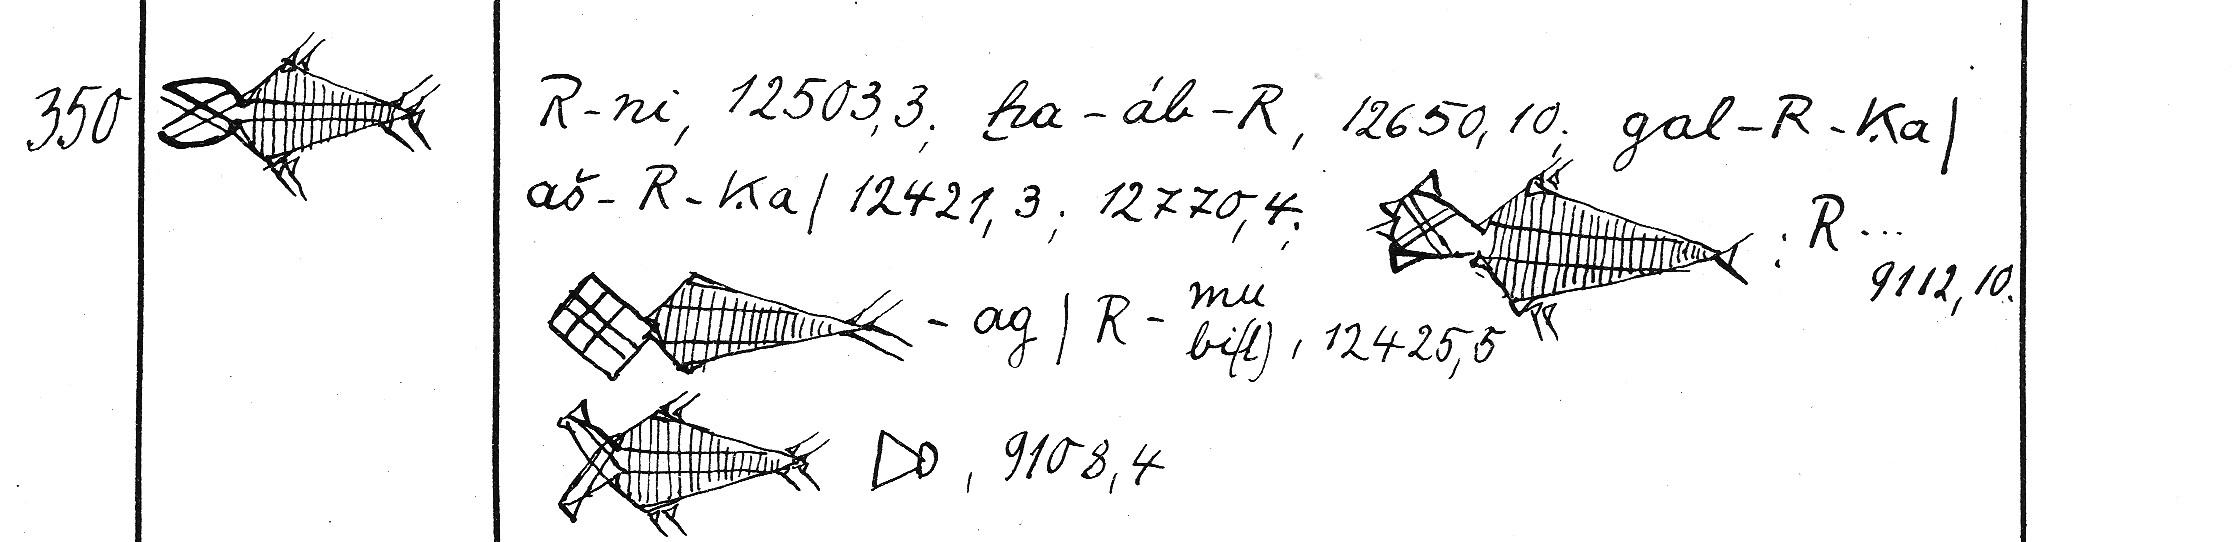 350 R-ni, 12503,3; ḫa-áb-R, 12650,10; gal-R-Ka|
aš-R-Ka| 12421,3; 12770,4; : R ...
9112,10.
-ag | R- mu bi(l), 12425,5
, 9108,4